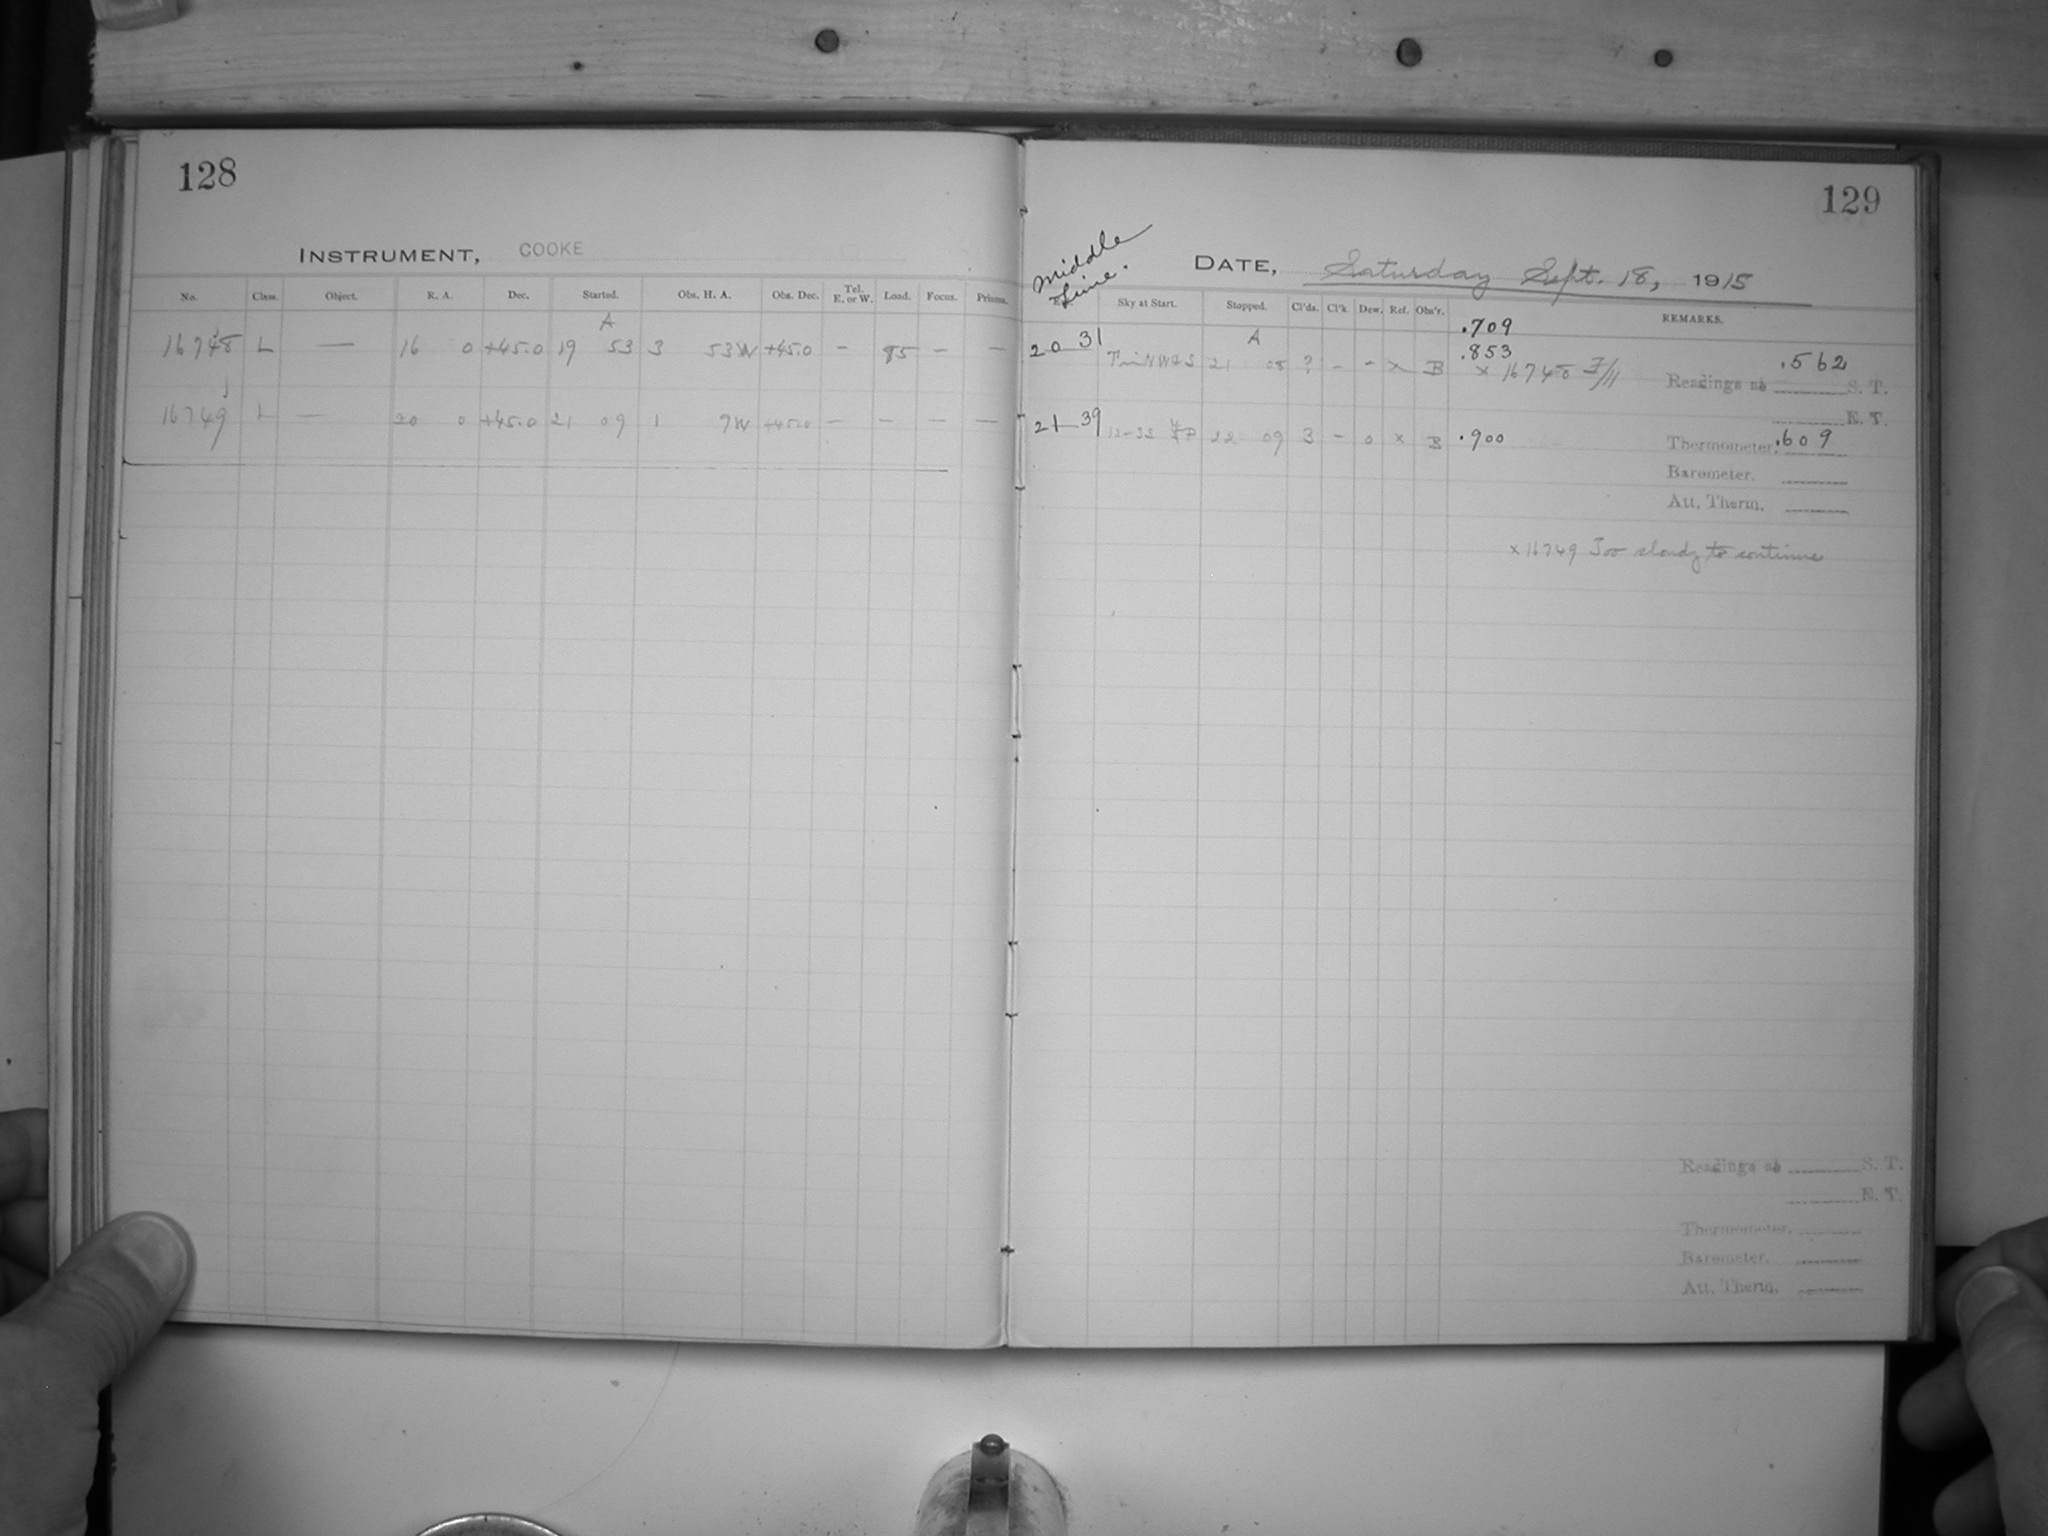 128
INSTRUMENT, COOKE
No. Class. Object. R. A. Dec. Started. Obs. H. A. Obs. Dec. Tel. E. or W. Load. Focus. Prisms.
A
16748 L — 16 0 +45.0 19 53 3 53W +45.0 - 85 - -
16749 L — 20 0 +45.0 21 09 1 9W +45.0 - - - -
129
Middle
Time.
DATE, Saturday Sept. 18, 1915
Sky at Start. Stopped. Cl'ds. Cl'k Dew. Ref. Obs'r. REMARKS.
.709
A
20 31 21 08 ? - - x B .853 .562
x 16748
Readings at S. T.
E. T.
21 39 22 09 3 - 0 x B .900
Thermometer. .609
Barometer.
Att. Therm.
x 16749 Too cloudy to continue
Readings at S. T.
E. T.
Thermometer.
Barometer.
Att. Therm.